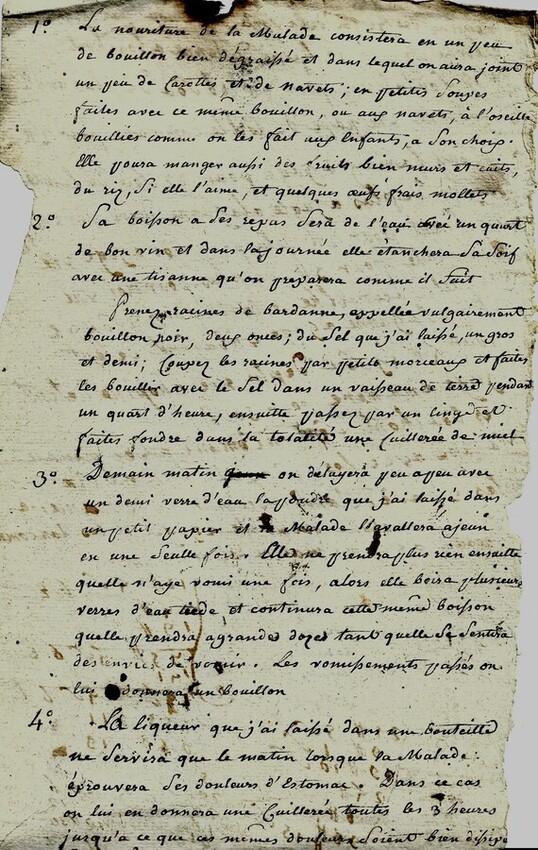 1.º La nouriture de la Malade consistera en un peu
de bouillon bien dégraissé et dans lequel on aura joint
un peu de Carottes et de navets; en petites Soupes
faites avec ce même bouillon, ou aux navets, à l'oseille
bouillies comme on les fait aux Enfants, a Son choix.
Elle poura manger aussi des fruits bien murs et cuits,
du riz, Si elle l'aime, et quelques œufs frais mollets
2.º Sa boisson a Ses repas Sera de l'eau avec un quart
de bon vin et dans la journée elle étanchera Sa Soif
avec une tisanne qu'on preparera comme il Suit
Prenez racines de bardanne, appellée vulgairement
bouillon noir, deux onces; du Sel que j'ai laissé, un gros
et demi; Coupez les racines par petits morceaux et faites
les bouillir avec le Sel dans un vaisseau de terre pendant
un quart d'heure, ensuite passez par un linge et
faites fondre dans la totalité une Cuillerée de miel
3.º Demain matin on delayera peu a peu avec
un demi verre d'eau la poudre que j'ai laissé dans
un petit papier et la Malade l'avallera ajeun
en une Seulle fois. Elle ne prendra plus rien ensuite
quelle n'aye vomi une fois, alors elle boira plusieurs
verres d'eau tiede et continura cette même boisson
quelle prendra a grandes dozes tant quelle Se Sentira
des envies de vomir. Les vomissements passés on
lui donnera un bouillon
4.º La liqueur que j'ai laissé dans une bouteille
ne Servira que le matin lorsque la Malade
éprouvera Ses douleurs d'Estomac. Dans ce cas
on lui en donnera une Cuillerée toutes les 3 heures
jusqu'a ce que ces mêmes douleurs Soient bien dissipé